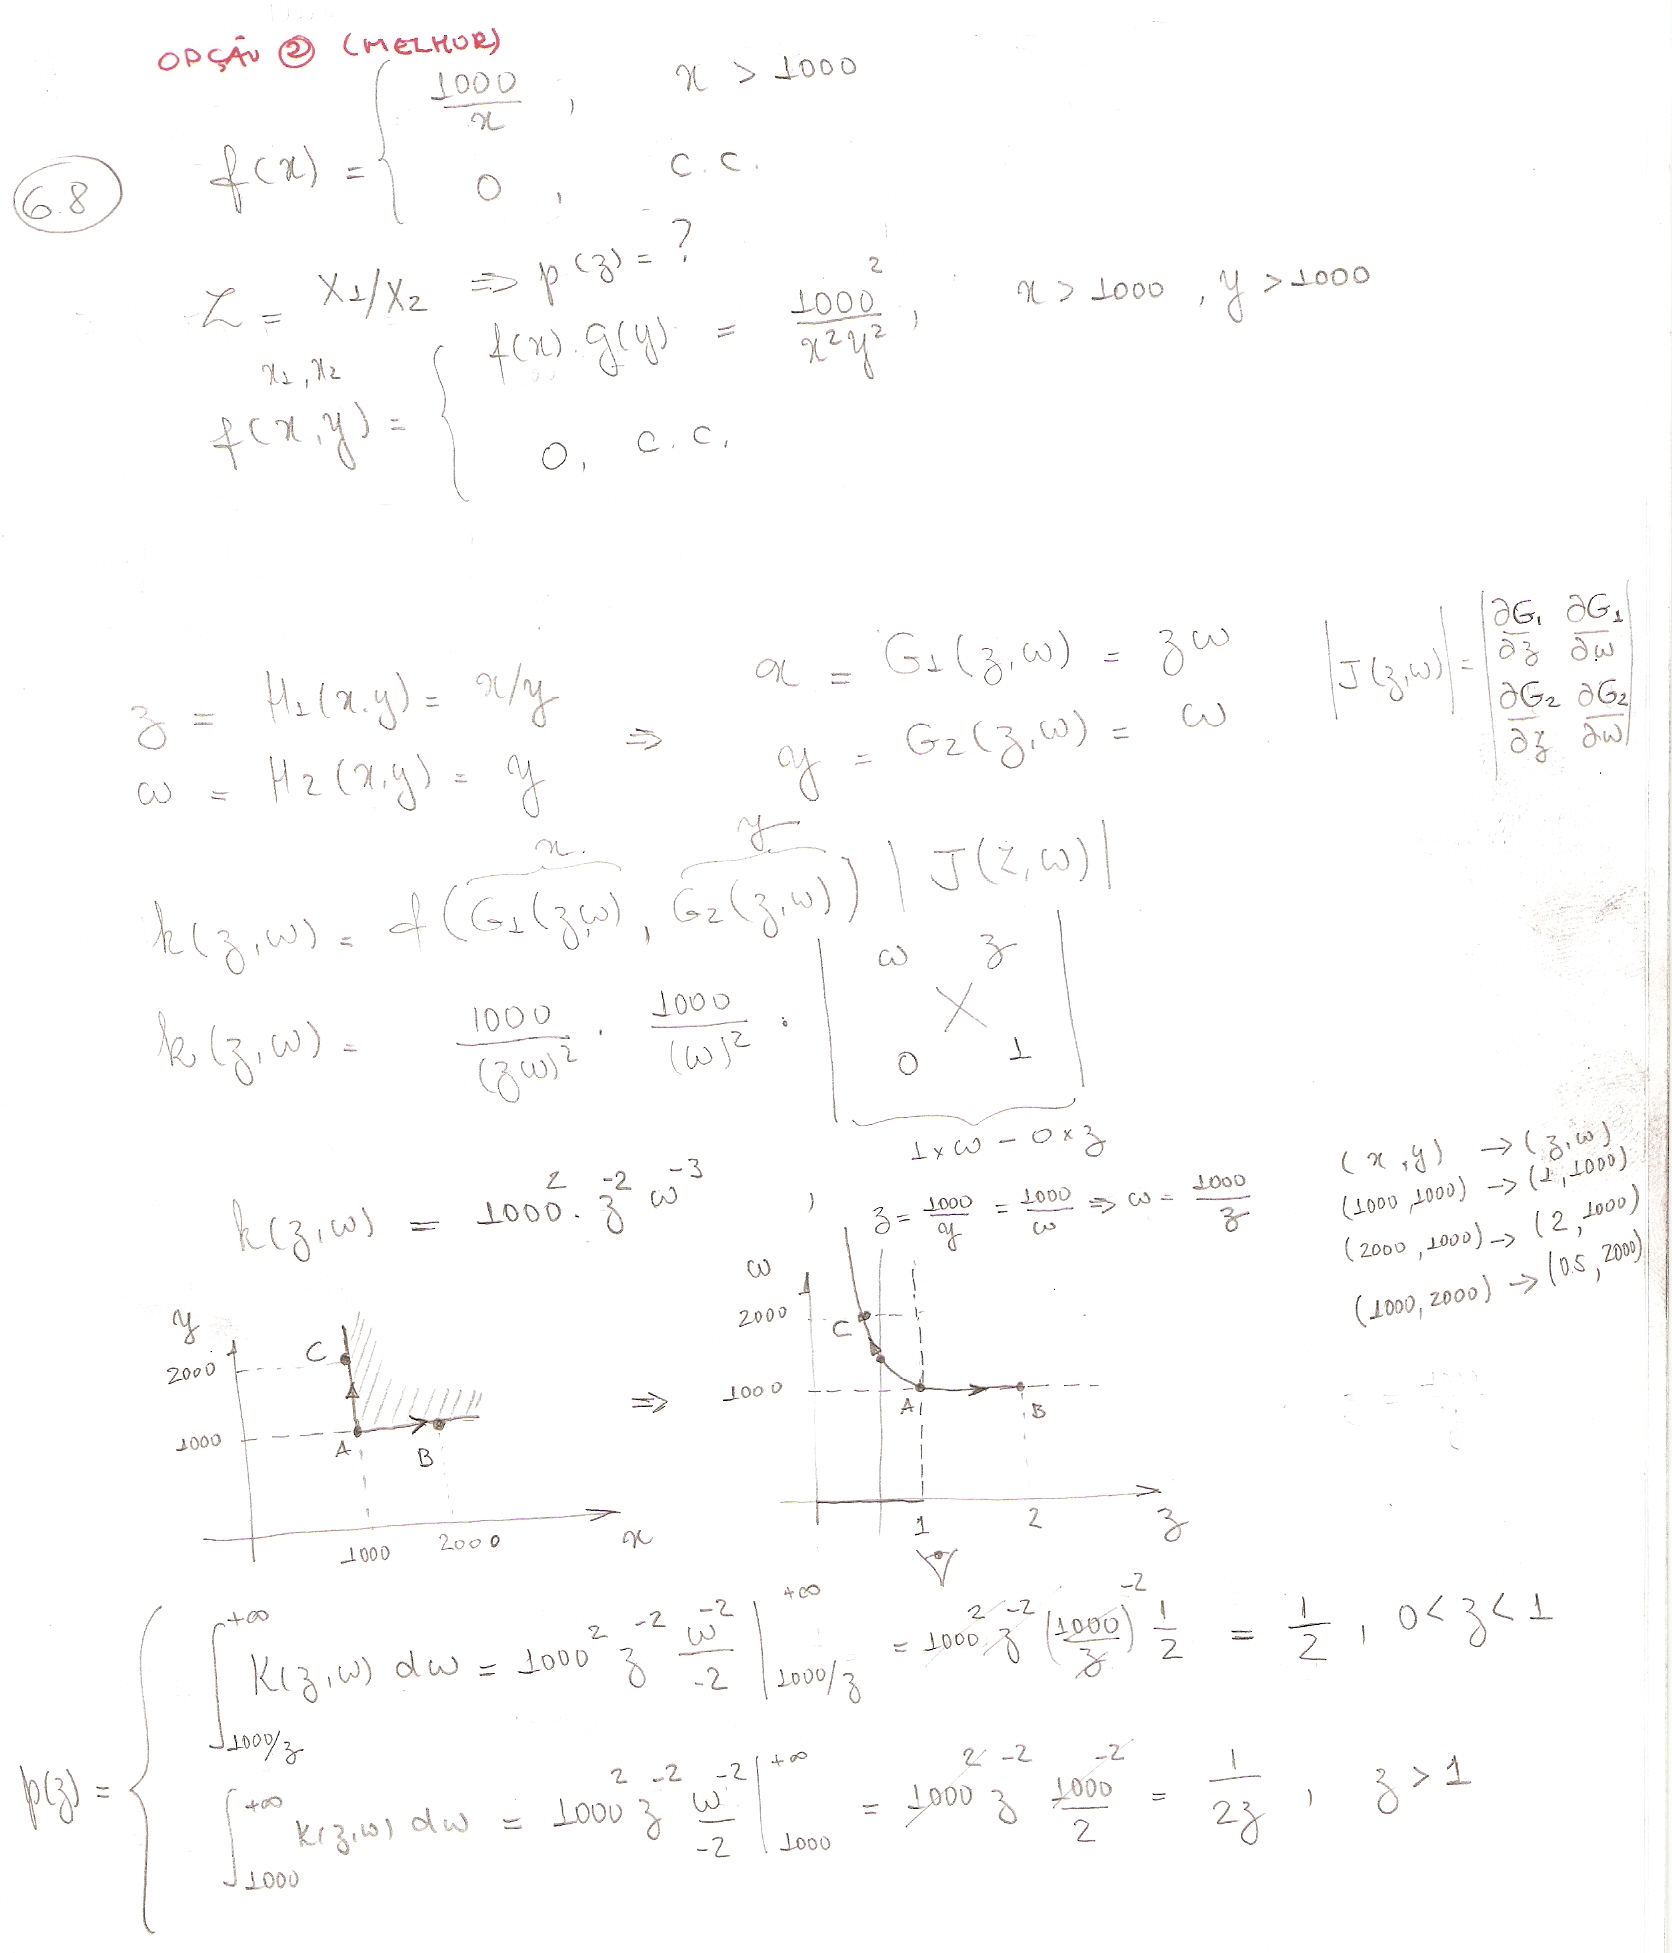 OPÇÃO ② (MELHOR)
6.8
f(x) = { 1000/x , x > 1000
0 , c.c.
Z = X1/X2 ⇒ p(z) = ?
x1, x2
f(x,y) = { f(x).g(y) = 1000²/x²y² , x > 1000 , y > 1000
0, c.c.
z = H1(x,y) = x/y ⇒ x = G1(z,w) = zw
w = H2(x,y) = y y = G2(z,w) = w
|J(z,w)| = | ∂G1/∂z ∂G1/∂w |
| ∂G2/∂z ∂G2/∂w |
x y
k(z,w) = f(G1(z,w), G2(z,w)) |J(z,w)|
k(z,w) = 1000/(zw)² . 1000/(w)² . | w z |
| 0 1 |
1×w – 0×z
k(z,w) = 1000² . z⁻² w⁻³ ,
z = 1000/y = 1000/w ⇒ w = 1000/z
(x,y) → (z,w)
(1000,1000) → (1,1000)
(2000,1000) → (2,1000)
(1000,2000) → (0.5,2000)
y
2000
C
1000
A
B
1000 2000 x
⇒
w
2000
C
1000
A
B
1 2 z
p(z) = { ∫_{1000/z}^{+∞} K(z,w) dw = 1000² z⁻² w⁻²/-2 |_{1000/z}^{+∞} = 1000² z⁻² (1000/z)⁻² 1/2 = 1/2 , 0 < z < 1
∫_{1000}^{+∞} k(z,w) dw = 1000² z⁻² w⁻²/-2 |_{1000}^{+∞} = 1000² z⁻² 1000⁻²/2 = 1/2z , z > 1